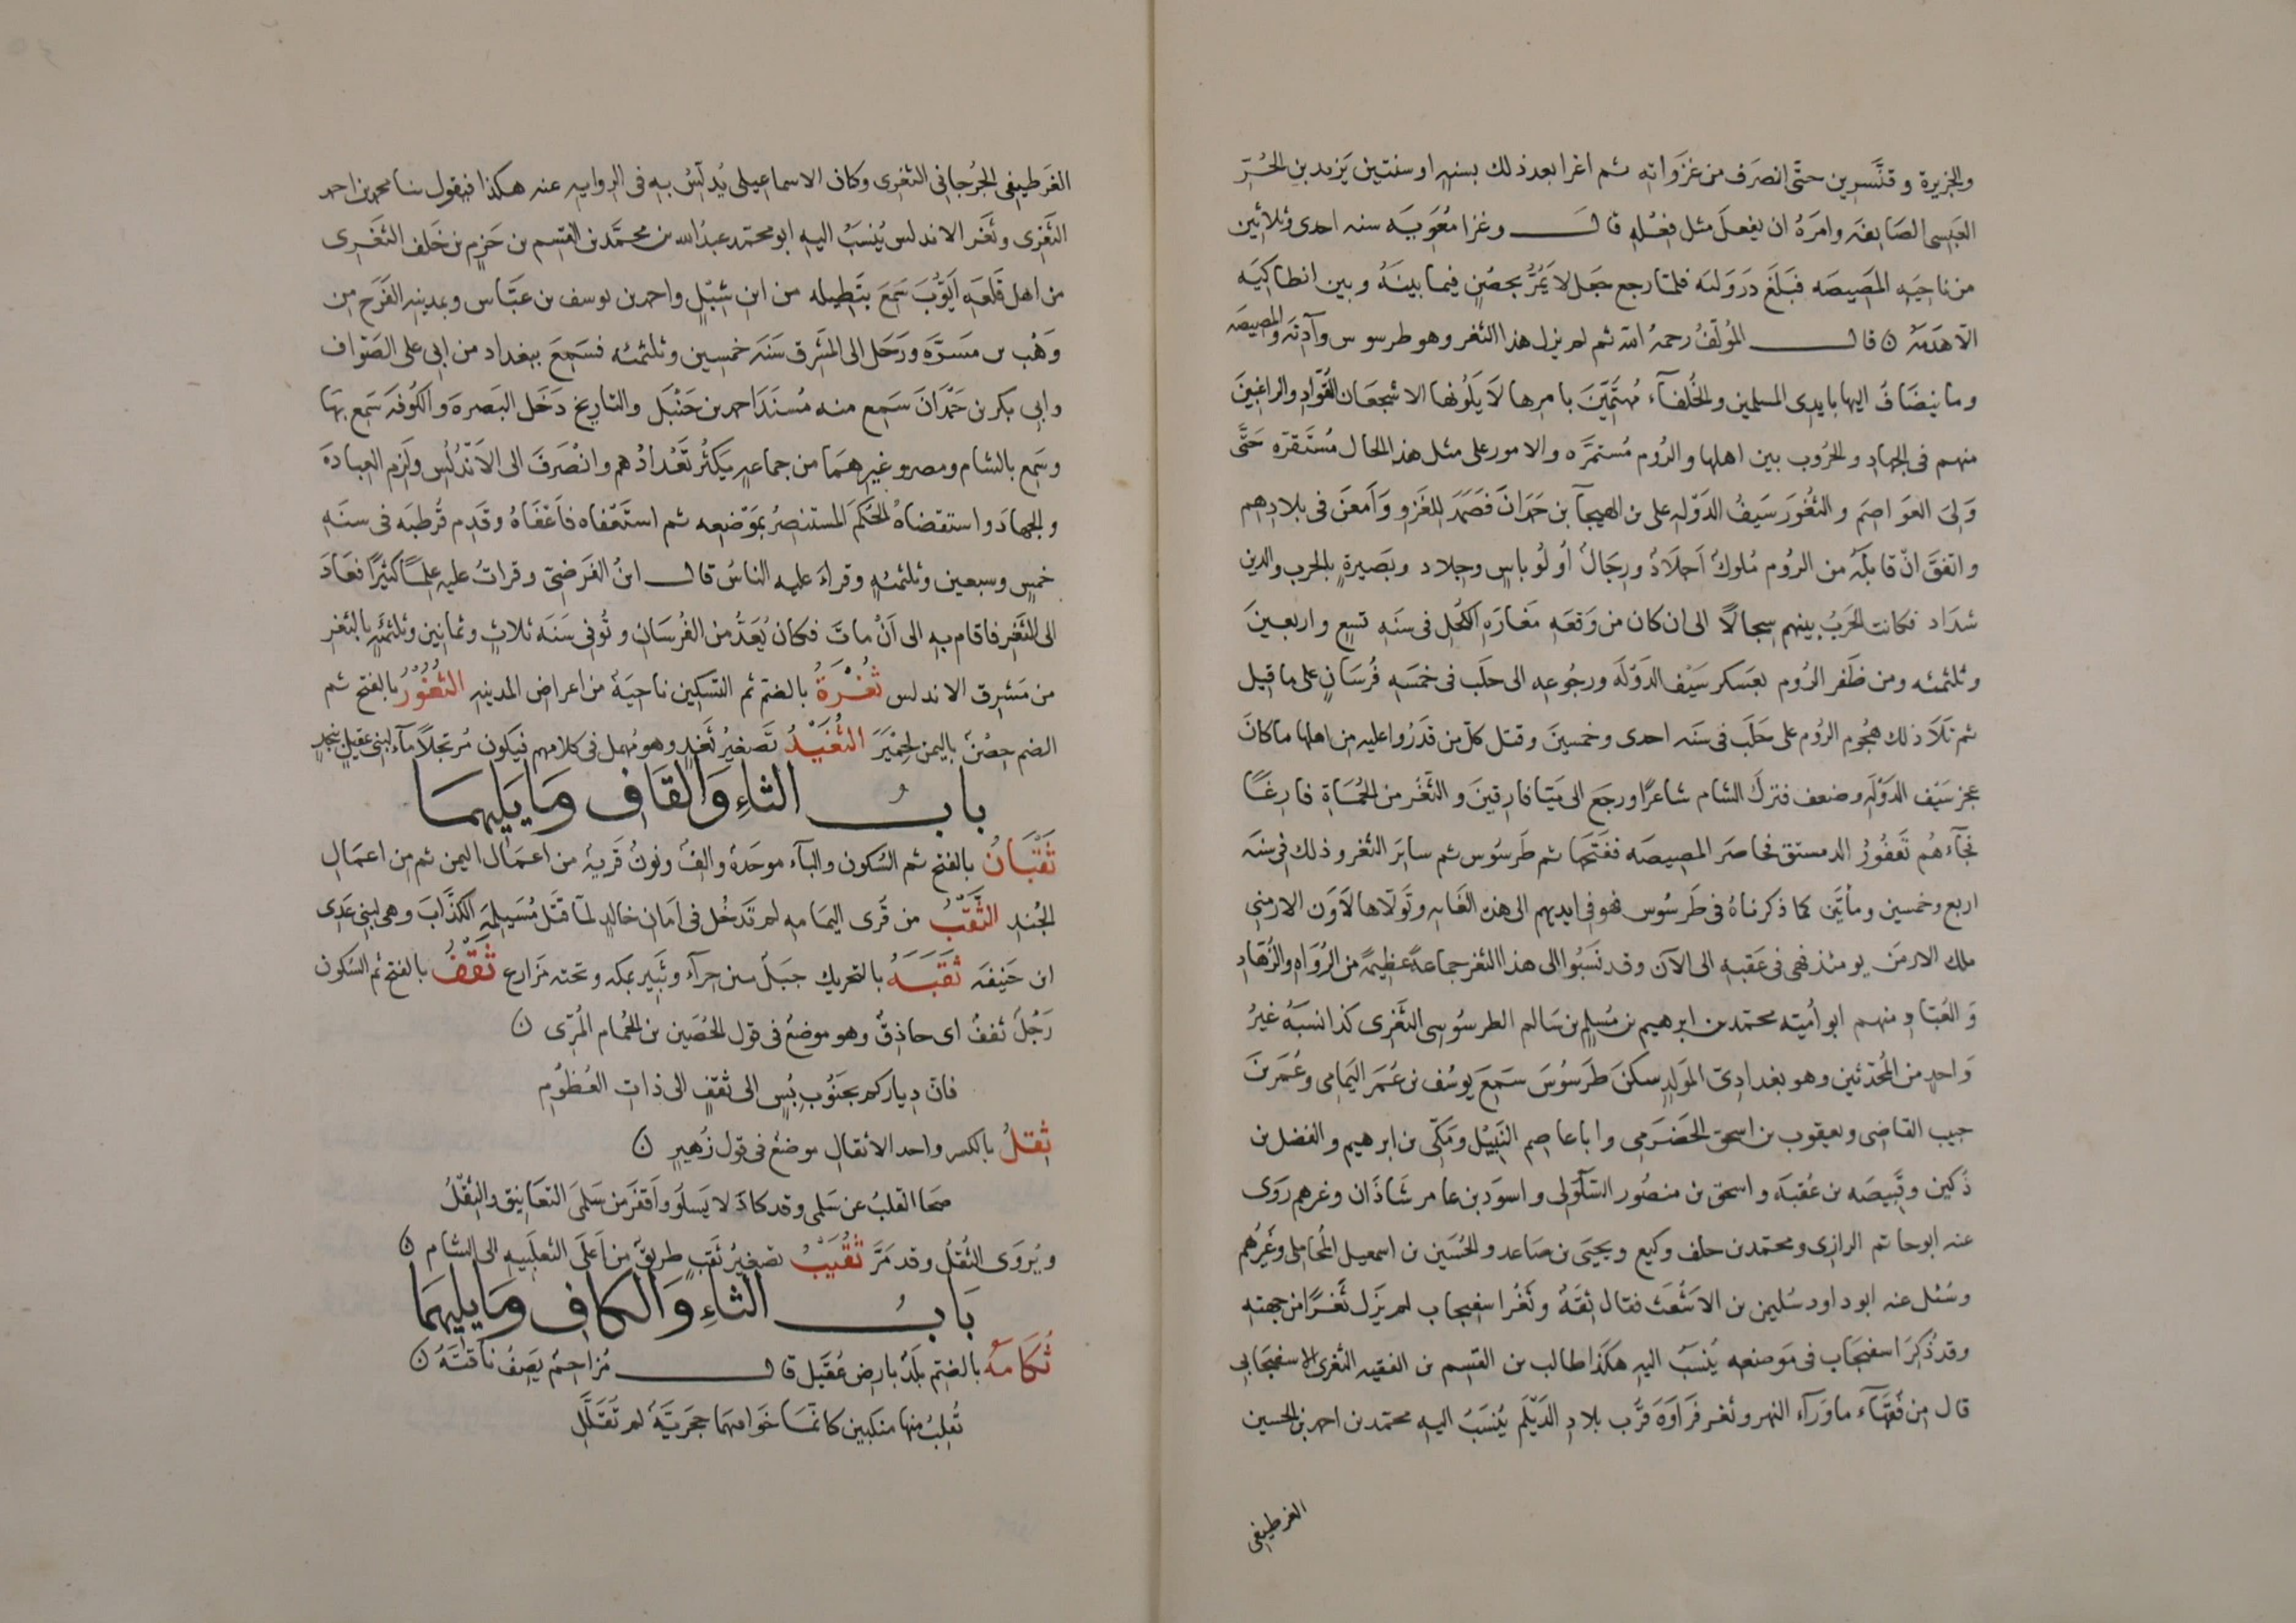 والجزيرة وقنّسرين حتّى انصرف من غزواته ثم اغزا بعد ذلك بسنه او سنتين يزيد بن الحُرّ
العبسى الصايفه وامرهُ ان يفعل مثل فعله قال وغزا معوية سنه احدى وثلاثين
من ناحيه المصيصه فبلغ دَرَوليه فلمّا رجع جعل لا يمُرّ بحصنٍ فيما بينهُ وبين انطاكيه
الّا هدمهُ ن قال المؤلّفُ رحمهُ الله ثم لم يزل هذا الثغر وهو طرسوس وآذنه والمصيصه
وما ينضاف اليها بايدى المسلمين والخُلفآء مُهتمّين بامرها لا يَلُونها الا شجعان القوّاد والراغبين
منهم فى الجهاد والحُروب بين اهلها والرُوم مُستمرّه والامور على مثل هذه الحال مُستقرّه حتّى
وَلِىَ العواصم والثغور سَيفُ الدَوله على بن الهيجآ بن حمدان فصمد للغزو وَامعن فى بلادهم
واتفق انّ قابله من الرُوم مُلوكٌ اجلادٌ ورجالٌ اُولُو باسٍ وجِلاد وبَصيرةٍ بالحرب والدين
شداد فكانت الحربُ بينهم سجالاً الى ان كان من وَقعهِ مَغارهِ الكُحل فى سنه تسعٍ واربعين
وثلثمئه ومن ظَفر الرُوم بعسكر سَيف الدَوْلَه ورجُوعه الى حلب فى خمسه فُرسَانٍ على ما قيل
ثم تلا ذلك هجُوم الرُوم على حَلَب فى سَنه احدى وخمسين وقتل كلّ من قدرُوا عليه من اهلها ما كان
عجز سَيف الدَوله وضعف فترك الشام شاغرًا ورجع الى ميّافارقين والثَغر من الحُماةِ فارغًا
فجآءهُم نقفُورُ الدمستق فحاصر المصيصه ففتحها ثم طَرسُوس ثم سايرَ الثغر وذلك فى سَنه
اربع وخمسين ومأتين كما ذكرناهُ فى طَرسُوس فهو فى ايديهم الى هذه الغايه وتَولّاها لاون الارمنى
ملك الارمن يومئذ فهى فى عقبه الى الآن وقد نسبُوا الى هذا الثغر جماعةً عظيمةً من الرُواه والزُهّاد
وَ العُبّاد منهم ابو اُميّه محمّد بن ابرهيم بن مُسلم بن سَالم الطرسُوسى الثغرى كذا نسبهُ غيرُ
وَاحدٍ من المُحدّثين وهو بغدادىّ المولد سكن طَرسُوسَ سَمعَ يوسُف بن عُمر اليمامى وعُمر بن
حبيب القاضى ويعقوب بن اسحق الحضرمى وابا عاصم النَبيل ومَكّى بن ابرهيم والفضل بن
دُكين وقبيصه بن عُقبة واسحق بن منصُور السّلُولى واسود بن عامر شاذَان وغرهم رَوَى
عنه ابو حاتم الرازى ومحمّد بن خلف وكيع ويحيى بن صاعد والحُسَين بن اسمعيل المُحاملى وغيرُهُم
وسُئل عنه ابو داود سُليمن بن الاشعث فقال ثقَهُ وثَغْرُ اسفيجاب لم يزَل ثَغْرًا من جهته
وقد ذُكِرَ اسفيجاب فى مَوضعه يُنسبُ اليه هكذا طالب بن القسم بن الفقيه الثغرى الاسفيجابى
قال من فُقهآء ماورآء النهر وثغر فراوَه قُرب بلاد الدَيْلم يُنسَبُ اليه محمّد بن احمد بن الحسين
الغرطيفى
الغَرطيفى الجُرجانى الثغرى وكان الاسماعيلى يُدلّسُ به فى الروايه عنه هكذا فيقول ثنا محمد بن احمد
الثَغْرِى وثَغر الاندلس يُنسَبُ اليه ابو محمّد عبدُ الله بن محمَّد بن القسم بن حَزم بن خَلف الثغرى
من اهل قلعه ايّوُبَ سَمعَ بتَطيله من ابن شِبْلٍ واحمد بن يوسف بن عبّاس وبمدينه الفرَج من
وَهْب بن مَسرَّه ورَحل الى المشرق سَنه خمسين وثلثمئه فسَمِعَ ببغداد من ابى على الصَوّاف
وابى بكر بن حَمْدَانَ سَمع منه مُسنَدَ احمد بن حَنْبَل والتاريخ دَخَل البَصره وَالكُوفه سَمع بها
وسَمع بالشام ومصر وغيرهما من جماعهٍ يَكثرُ تَعْدادُهم وانْصَرفَ الى الاَندُلس ولزم العبادهَ
والجهاد واستقضاهُ الحكم المستنصرُ بمَوضعه ثم استَعْفاه فاَعْفَاهُ وقدم قُرطبه فى سنه
خمسٍ وسبعين وثلثمئهٍ وقراءَ عليه الناسُ قال ابنُ الفرضىّ وقراتُ عليه عِلمًا كثيرًا فعَادَ
الى الثَغرِ فاقام به الى اَنْ ماتَ فكان يُعَدُّ من الفُرسَان وتُوفى سَنه ثلاثٍ وثمانين وثلثمئهٍ بالثغر
من مَشرق الاندلس ثُغْرَةُ بالضمّ ثم التسكين ناحيَهٌ من اعراض المدينه الثَغُوْرُ بالفتح ثم
الضم حِصْنٌ باليمن لحِمْيَرَ الثُغَيْدُ تَصغيرُ ثَغدٍ وهو مُهمل فى كلامهم فيكون مُرتجلاً مآء لبنى عقيلٍ بنجدٍ
بابُ الثاءِ وَالقَافِ وَمَا يَليهمَا
ثَقْبَانُ بالفتح ثم السُكون والبآء موحَدهٌ والفٌ ونونٌ قَريهٌ من اعمال اليمن ثم من اعمَال
الجُند الثَّقْبُ من قُرى اليمامه لم تَدخُل فى اَمَان خالدٍ لمّا قَتَل مُسَيلمهَ الكذَّابَ وهى لبنى عَدى
ابن حَنيفه ثَقَبَهُ بالتحريك جبَلٌ بين حِرآء وثَبير بمكه وتحته مَزارع ثَقْفُ بالفتح ثم السُكون
رَجُلٌ ثقفٌ اى حاذِقٌ وهو موضعٌ فى قول الحُصَين بن الحُمام المُرّى ن
فانّ دياركم بجَنُوبِ بُسٍ الى ثَقْفٍ الى ذاتِ العُظوُمِ
ثِقلُ بالكسر واحد الاثقال موضعٌ فى قول زُهيرٍ ن
صَحا القلبُ عن سَلمى وقد كادَ لا يَسلُو واَقفرَ من سَلمىَ التعَانيق والثقْلُ
ويُروَى الثقلُ وقد مَرَّ ثُقَيْبُ تصغيرُ ثَقبٍ طريقٌ من اَعلَى الثعلَبيه الى الشام ن
بَابُ الثاءِ وَالكافِ وَمَا يليهمَا
ثُكَامهُ بالضمّ بلدٌ بارض عُقَيل قال مُزاحمٌ يَصفُ ناقتَهُ ن
تُقلبُ منها منكبين كانّما خَوافيهما حجريَّهٌ لم تُفَلَّلِ